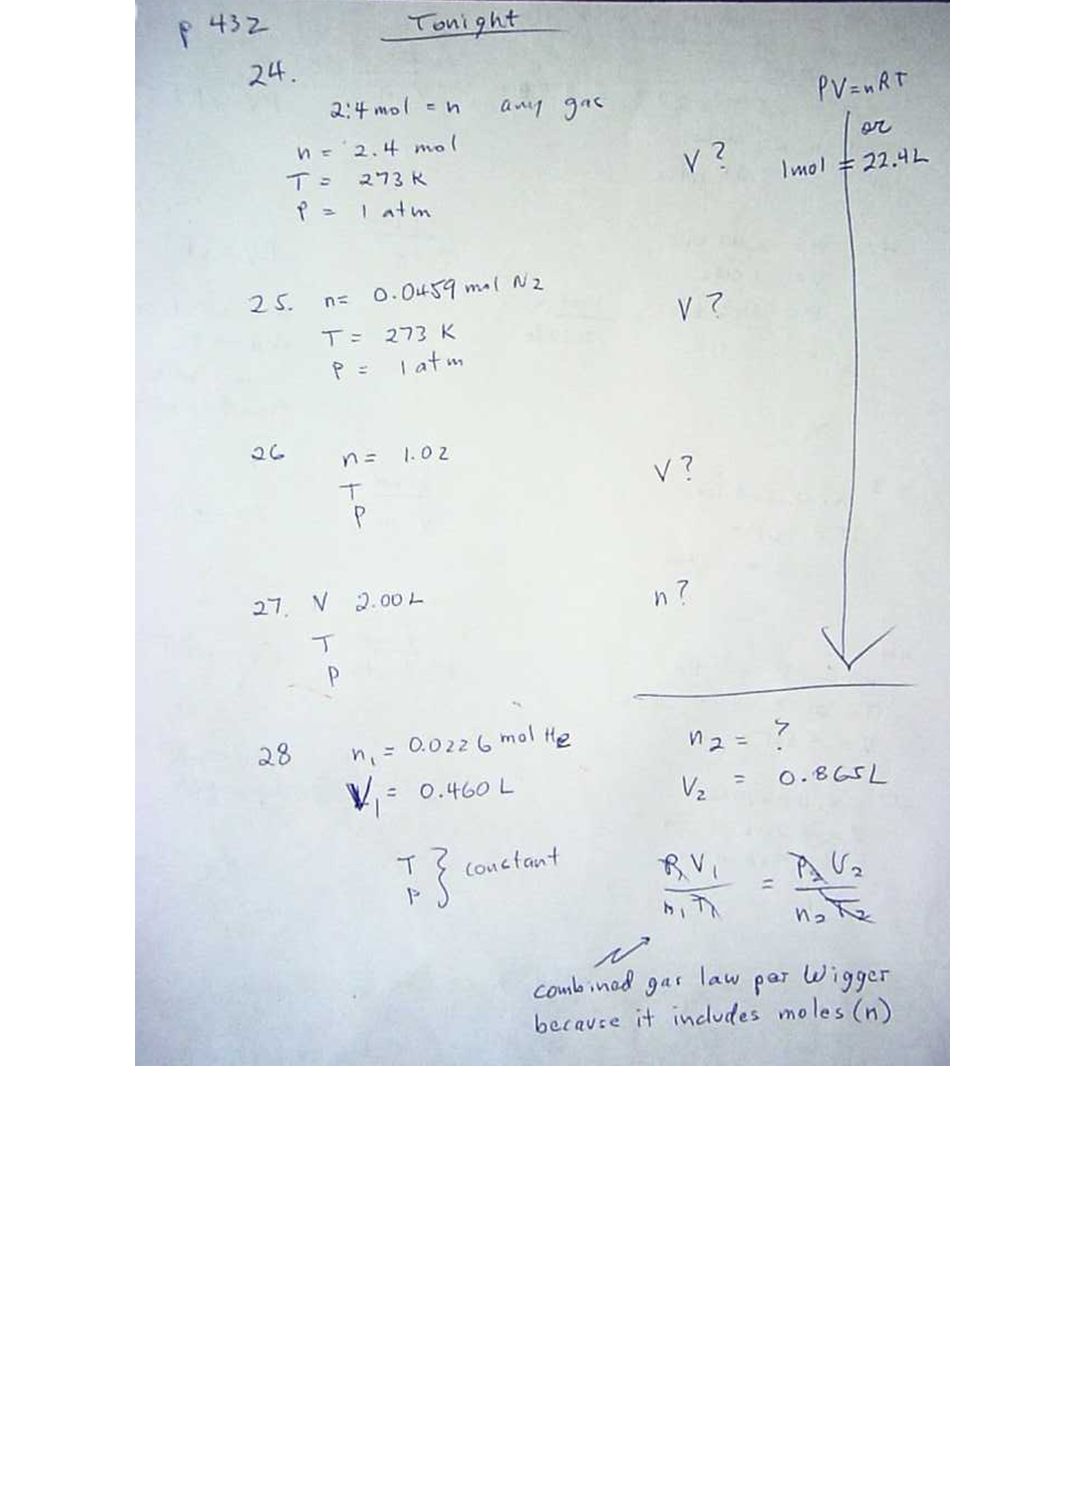 p 432
Tonight
24.
2.4 mol = n any gas
n = 2.4 mol
T = 273 K
P = 1 atm
V ?
PV=nRT
or
1mol = 22.4L
25. n= 0.0459 mol N2
T = 273 K
P = 1 atm
V ?
26 n= 1.02
T
P
V ?
27. V 2.00 L
T
P
n ?
28 n1 = 0.0226 mol He
V1 = 0.460 L
n2 = ?
V2 = 0.865L
T } constant
P
P1 V1 = P2 V2
n1 T1 n2 T2
combined gas law per Wigger
because it includes moles (n)